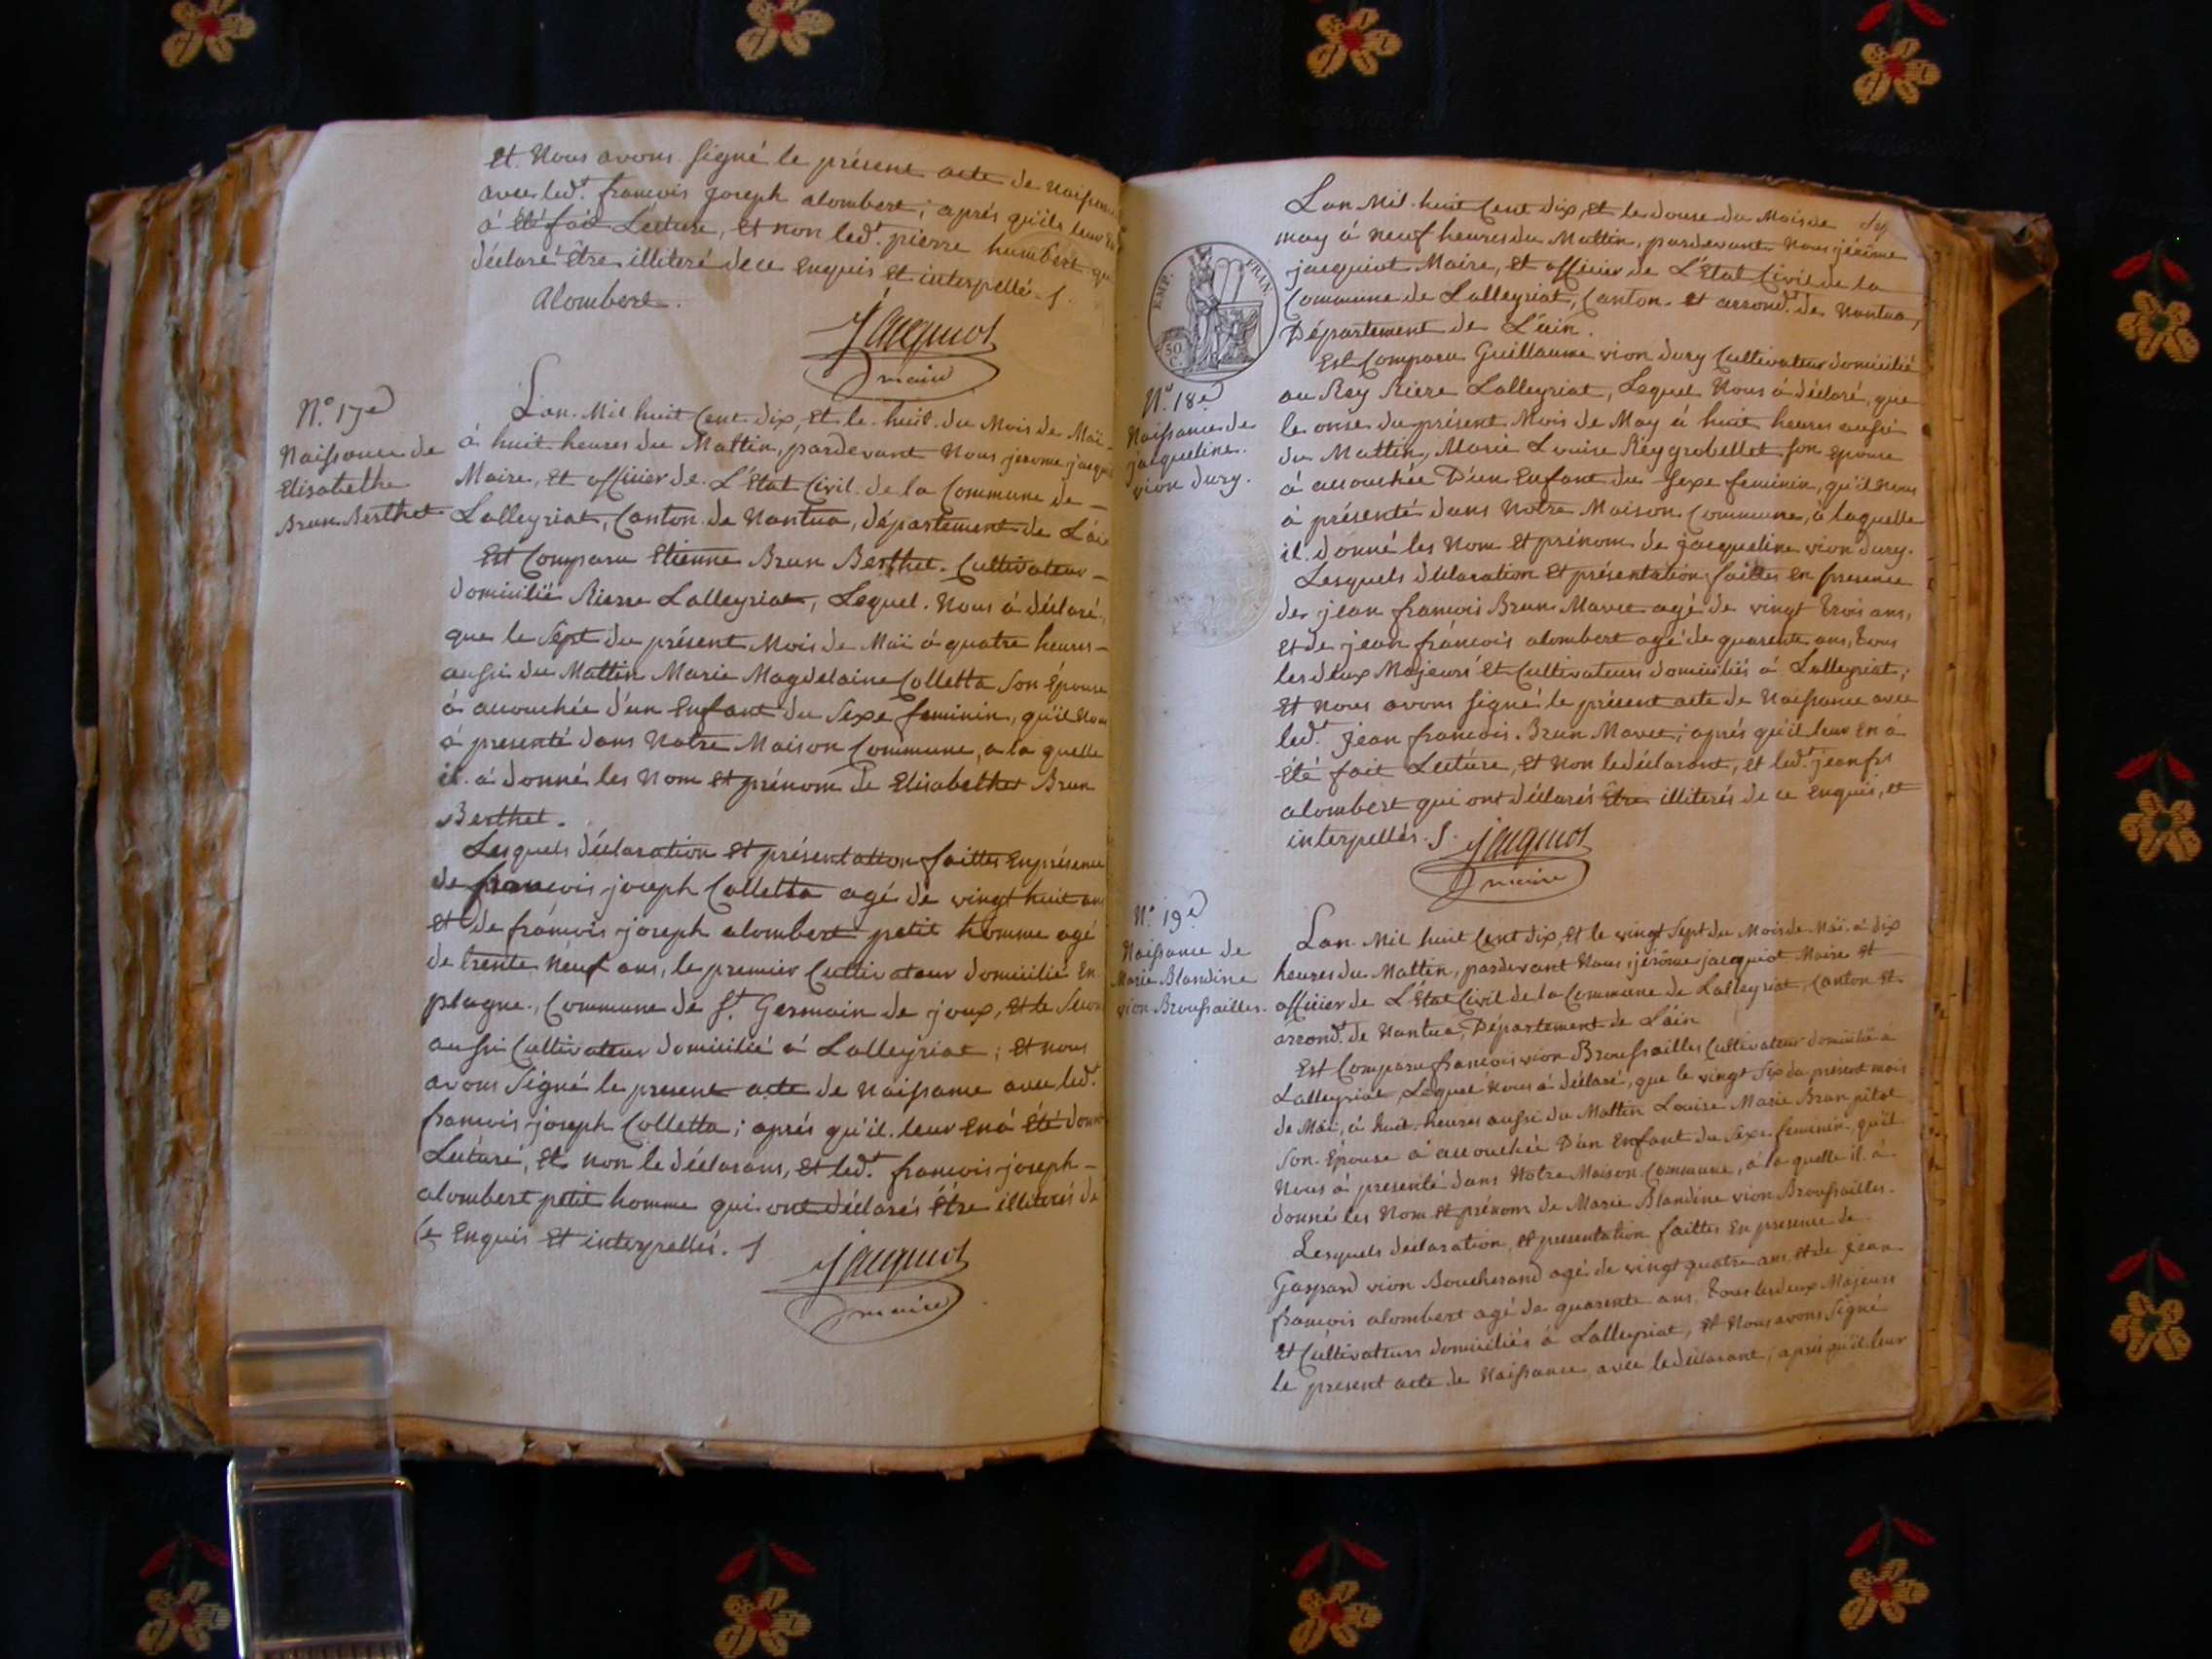 et Nous avons signé le présent acte de Naissance
avec led.t francois joseph alombert; aprés qu'ils leur
á été fait Lecture, et non led.t pierre humbert qui
déclaré être illiteré de ce enquis et interpellé. S.
Alombert.
Jacquiot
maire
N.o 17e
Naissance de
Elisabethe
Brun Berthet
Lan Mil huit Cent dix, et le huit du Mois de Mai
á huit heures du Mattin, pardevant Nous jerome jacqui
Maire, et officier de L'Etat Civil de la Commune de
Lalleyriat, Canton de Nantua, département de Láin
Est Comparu Etienne Brun Berthet Cultivateur
domicilié Rierre Lalleyriat, Lequel Nous á déclaré,
que le Sept du présent Mois de Mai á quatre heures
aussi du Mattin Marie Magdelaine Colletta Son Épouse
á accouchée d'un Enfant du Sexe feminin, qu'il Nous
á presenté dans Notre Maison Commune, a la quelle
il á donné les Nom et prénom de Elisabethet Brun
Berthet.
Lesquels déclaration et présentation faittes En présence
de francois joseph Colletta agé de vingt huit ans
et de francois joseph alombert petit homme agé
de trente Neuf ans, le premier Cultivateur domicilié En
plagne, Commune de St Germain de joux, et le Secon
aussi Cultivateur domicilié á Lalleyriat; et nous
avons Signé le present acte de Naissance avec led.t
francois joseph Colletta; aprés qu'il leur En á été donné
Lecture, et non le déclarans, et led.t francois joseph
alombert petit homme qui ont déclarés être illiterés de
Ce Enquis et interpellés. S
Jacquiot
maire
EMP. FRAN.
50
C.
Lan Mil huit Cent dix, et le douse du Mois de
may á neuf heures du Mattin, pardevant Nous jérôme
jacquiot Maire, et officier de L'Etat Civil de la
Commune de Lalleyriat, Canton et arrond.t de Nantua,
Département de L'ain.
N.o 18e
Naissance de
jacqueline
vion dury.
Est Comparu Guillaume vion dury Cultivateur domicilié
au Rey Riere Lalleyriat, Lequel Nous á déclaré, que
le onse du présent Mois de May á huit heures aussi
du Mattin, Marie Louise Reygrobellet son epouse
á accouchée D'un Enfant du Sexe feminin, qu'il nous
á présenté dans Notre Maison Commune, á laquelle
il donné les Nom et prénom de jacqueline vion dury.
Lesquels déclaration et présentation faittes en presence
de jean francois Brun Mavet agé de vingt trois ans,
et de jean francois alombert agé de quarente ans, tous
les deux Majeurs et Cultivateurs domiciliés á Lalleyriat;
et nous avons signé le présent acte de Naissance avec
led.t jean francois Brun Mavet; aprés qu'il leur en á
été fait Lecture, et Non le déclarant, et led.t jean frs
alombert qui ont déclarés être illiterés de ce enquis, et
interpellés. S.
jacquiot
maire
N.o 19e
Naissance de
Marie Blandine
vion Broussailles.
Lan Mil huit Cent dix, et le vingt Sept du Mois de Mai á dix
heures du Mattin, pardevant Nous jérôme jacquiot Maire et
officier de L'Etat Civil de la Commune de Lalleyriat, Canton et
arrond.t de Nantua, Département de Láin
Est Comparu francois vion Broussailles Cultivateur domicilié a
Lalleyriat, Lequel Nous á déclaré, que le vingt Six du présent mois
de Mai, á huit heures aussi du Mattin Louise Marie Brun pitot
Son Épouse á accouchée D'un Enfant du Sexe feminin, qu'il
Nous á presenté dans Notre Maison Commune, á la quelle il á
donné les Nom et prénom de Marie Blandine vion Broussailles.
Lesquels déclaration, et presentation faittes En presence de
Gaspard vion Boucherand agé de vingt quatre ans, et de jean
francois alombert agé de quarente ans, tous les deux Majeurs
et Cultivateurs domiciliés á Lalleyriat, et Nous avons Signé
le present acte de Naissance avec le déclarant; aprés qu'il leur